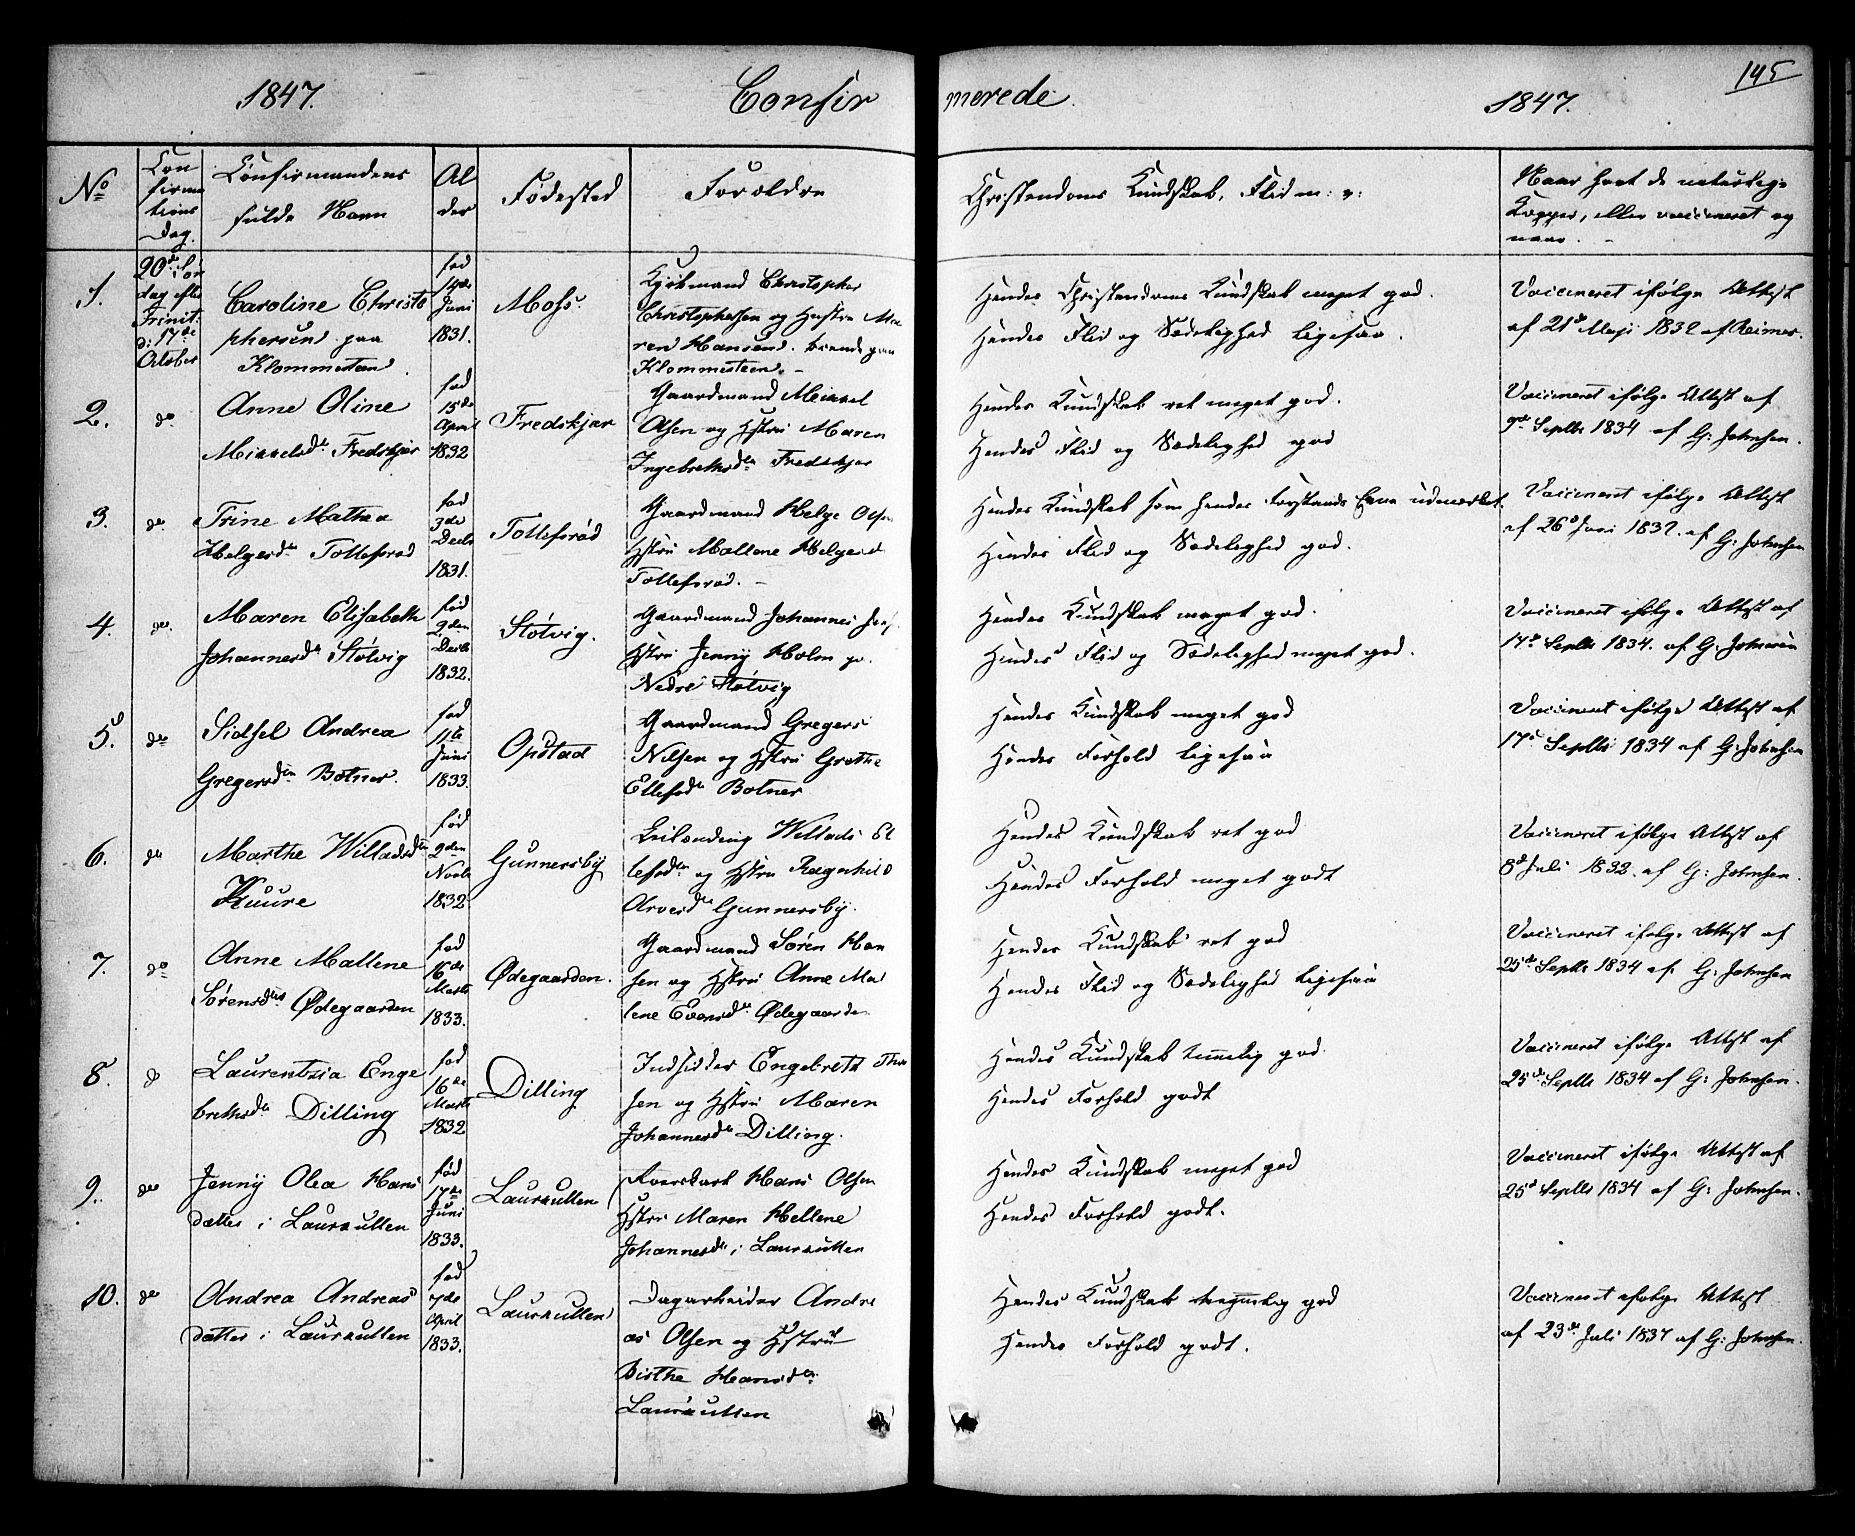 145
1847. Confirmerede. 1847.
No
Confirmations Dag.
Confirmandens fulde Navn
Alder
Fødested
Forældre
Christendoms Kundskab, Flid m: v:
Naar havt de naturlige
Kopper, eller vaccineret og
naar. -
1.
20de Sön
dag efter
Trinit:
d: 17de
October
Caroline Christo
phersen paa
Klommesteen.
fød
Juni
1831.
Moss.
Christopher
Christophersen og Hustru Ma
ren Hansen. boende paa
Klommesteen. -
Hendes Christendoms Kundskab meget god.
Hendes Flid og Sædelighed ligesaa.
Vaccineret ifølge Attest
af 21d Maji 1832 af Reimers.
2.
do
Anne Oline
Mikkelsdr Fredskjær
fød
15de
April
1832
Fredskjær
Gaardmand Mikkel
Olsen og Hstru Maren
Ingebretsdr Fredskjær
Hendes Kundskab ret meget god.
Hendes Flid og Sædelighed god
Vaccineret ifølge Attest af
9d Septbr 1834 af G: Johnsen.
3.
do
Trine Mathea
Helgesdr Tollefsrød
fød
3de
Decbr
1831.
Tollefsrød
Gaardmand Helge Olsen
Hstru Mallene Helgesd
Tollefsrød. -
Hendes Kundskab som hendes Forstands Evne udmærket.
Hendes Flid og Sædelighed god.
Vaccineret ifølge Attest
af 26d Juni 1832. af G: Johnsen
4.
do.
Maren Elisabeth
Johannesdr Støtvig
fød
2den
Decbr
1832.
Støtvig.
Gaardmand Johannes
Hstru Jenny Holm p.
Nedre Støtvig
Hendes Kundskab meget god.
Hendes Flid og Sædelighed meget god.
Vaccineret ifølge Attest af
17d Septbr 1834. af G: Johnsen
5.
do
Sidsel Andrea
Gregersdr Botner.
fød
11te
Juni
1833.
Opstad
Gaardmand Gregers
Nilsen og Hstru Grethe
Ellefsdr Botner
Hendes Kundskab meget god
Hendes Forhold ligesaa
Vaccineret ifølge Attest af
17d Septbr 1834 af G: Johnsen
6.
do
Marthe Willadsdr
Kuure
fød
2den
Novbr
1832
Gunnersby
Leilænding Willads El
lefsen og Hstru Ragnhild
Arvesdr Gunnersby.
Hendes Kundskab ret god
Hendes Forhold meget godt
Vaccineret ifølge Attest af
8d Juli 1832. af G: Johnsen.
7.
do
Anne Mallene
Sørensdr Ødegaarden
fød
16de
Marts
1833.
Ødegaarden.
Gaardmand Søren Han
sen og Hstru Anne Mal
lene Evensdr Ødegaarden
Hendes Kundskab ret god
Hendes Flid og Sædelighed ligesaa
Vaccineret ifølge Attest af
25de Septbr 1834 af G: Johnsen
8.
do
Laurentzia Enge
bretsdr Dilling
fød
16de
Marts
1832
Dilling
Indsidder Engebreth Thor
sen og Hstru Maren
Johannesdr Dilling.
Hendes Kundskab temmelig god
Hendes Forhold godt
Vaccineret ifølge Attest af
25d Septbr 1834 af G: Johnsen.
9.
do
Jenny Olea Hans
datter i Laurkullen
fød
17de
Juni
1833.
Laurkullen
Hans Olsen
Hstru Maren Hellene
Johannesdr i Laurkullen
Hendes Kundskab meget god
Hendes Forhold godt.
Vaccineret ifølge Attest af
25d Septbr 1834 af G: Johnsen.
10.
do
Andrea Andreas
datter i Laurkullen
fød
7de
April
1833.
Laurkullen
Dagarbeider Andre
as Olsen og Hstru
Birthe Hansdr
Laurkullen
Hendes Kundskab temmelig god
Hendes Forhold godt.
Vaccineret ifølge Attest
af 23de Juli 1837 af G: Johnsen.